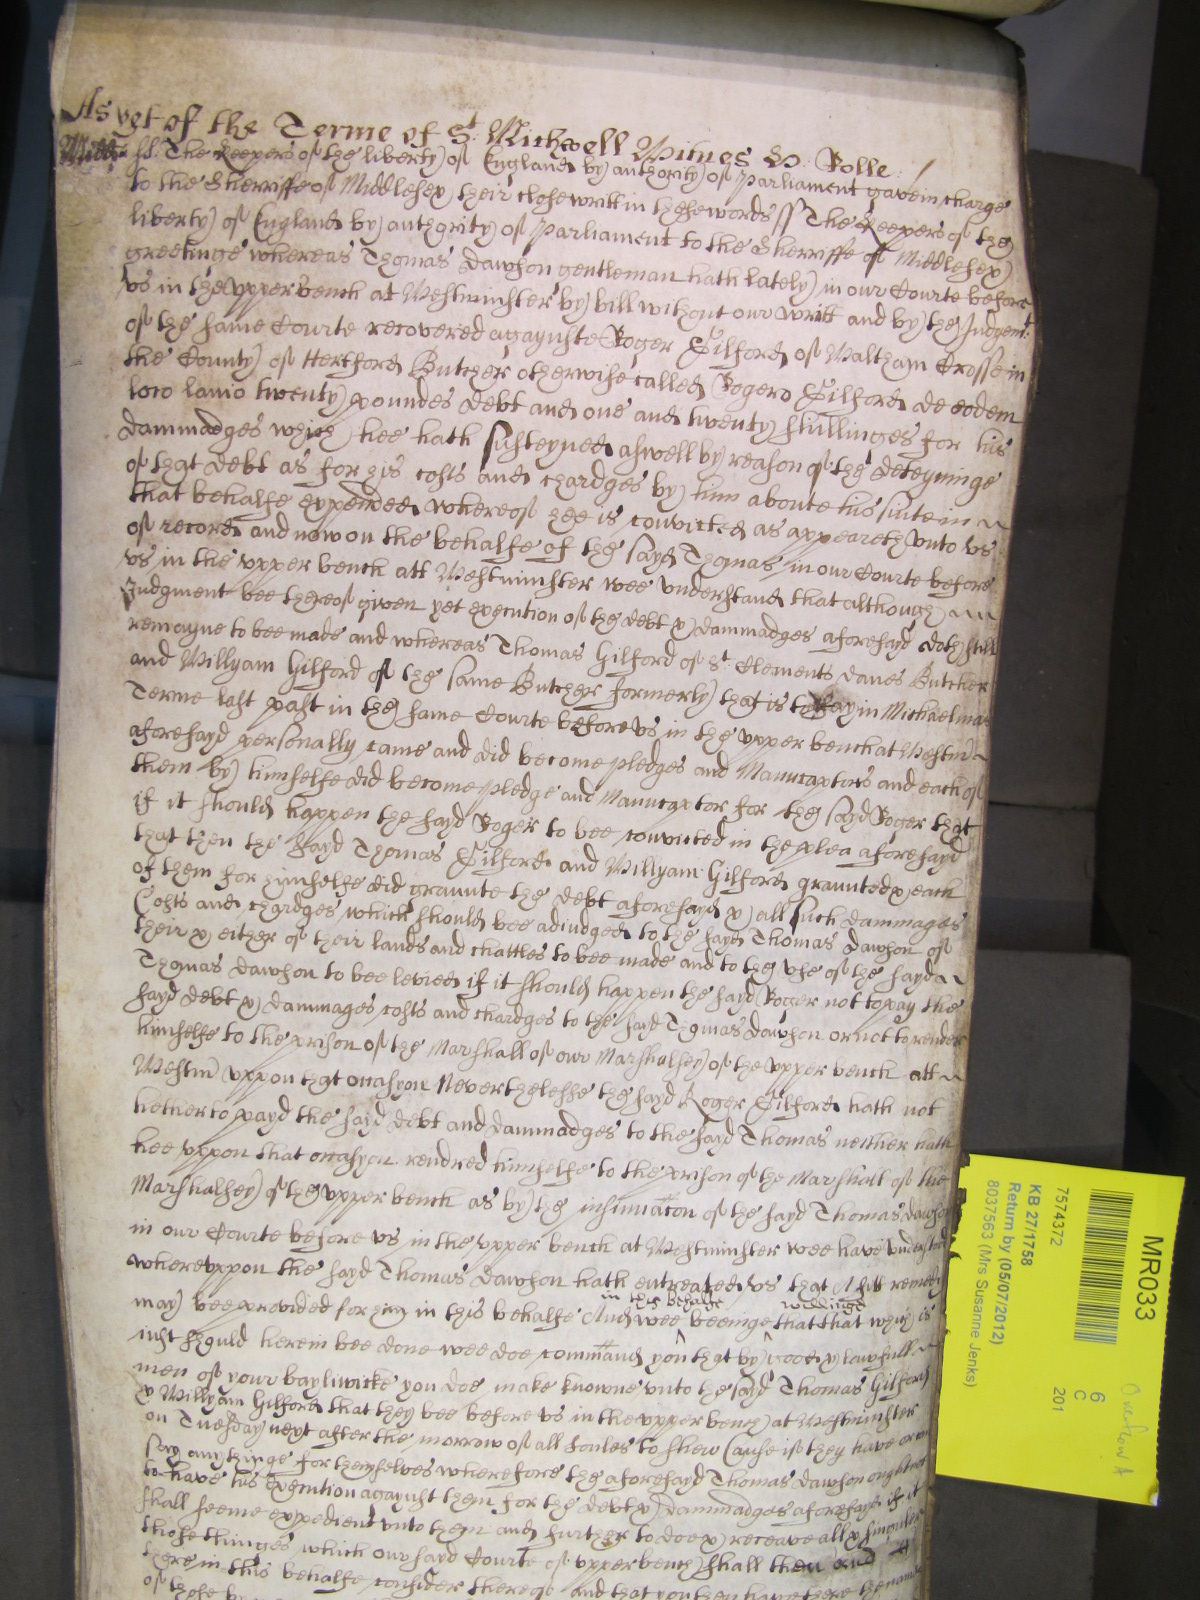 As yet of the Terme of St. Michaell Witnes &: Rolle
Midd ss. The keepers of the liberty of England by authority of Parliament gave in charge
to the Sherriffe of Middlesex their close writt in these words ss The keepers of the
liberty of England by authority of Parliament to the Sherriffe of Middlesex
greetinge whereas Thomas Dawson gentleman hath lately in our Courte before
vs in the vpper bench at Westminster by bill without our writt and by the Judgemt
of the same Courte recovered agaynste Roger Gilford of Waltham Crosse in
the County of Hertford Butcher otherwise called Rogero Gilford de eodem
loco lanio twenty poundes debt and one and twenty shillinges for his
dammadges which hee hath susteyned aswell by reason of the deteyninge
of that debt as for his costs and chardges by him aboute his suite in
that behalfe expended whereof hee is convicted as appeareth vnto vs
of record and now on the behalfe of the sayd Thomas in our Courte before
vs in the vpper bench att Westminster wee vnderstand that although
Judgment bee thereof given yet execution of the debt & dammadges aforesayd doth still
remayne to bee made and whereas Thomas Gilford of St. Clements Danes Butcher
and Willyam Gilford of the same Butcher formerly that is to say in Michaelmas
Terme last past in the same Courte before vs in the vpper bench at Westm
aforesayd personally came and did become pledges and Manucaptors and each of
them by himselfe did become pledge and Manucaptor for the sayd Roger that
if it should happen the sayd Roger to bee convicted in the plea aforesayd
that then the sayd Thomas Gilford and Willyam Gilford graunted & each
of them for hymselfe did graunte the debt aforesayd & all such dammages
Costs and chardges which should bee adiudged to the sayd Thomas Dawson of
their & either of their lands and chattles to bee made and to the vse of the sayd
Thomas Dawson to bee levied if it should happen the sayd Roger not to pay the
sayd debt & dammages costs and chardges to the sayd Thomas Dawson or not to render
himselfe to the prison of the Marshall of our Marshalsey of the vpper bench att
Westm vppon that occasyon Neverthelesse the sayd Roger Gilford hath not
hetherto payd the sayd debt and dammadges to the sayd Thomas neither hath
hee vppon that occasyon rendred himselfe to the prison of the Marshall of the
Marshalsey of the vpper bench as by the insinuacon of the sayd Thomas Dawson
in our Courte before vs in the vpper bench at Westminster wee have vnderstood
wherevppon the sayd Thomas Dawson hath entreated vs that A fitt remedy
may bee provided for him in this behalfe And wee in this behalfe beeinge willinge that that which is
iust should herein bee done wee doe command you that by good & lawfull
men of your bayliwicke you doe make knowne vnto the sayd Thomas Gilford
& Willyam Gilford that they bee before vs in the vpper bench at Westminster
on Tuesday next after the morrow of all soules to shew Cause if they have or can
say any thinge for themselves wherefore the aforesayd Thomas Dawson ought not
to have his execution agaynst them for the debt & dammadges aforesayd if it
shall seeme expedient vnto them and further to doe & receave all & singuler
those thinges which our sayd Courte of vpper bench shall then and
there in this behalfe consider thereof and that you then have there the names
of those by
MR033
6
C
201
7574372
KB 27/1758
Return by (05/07/2012)
8037563 (Mrs Susanne Jenks)